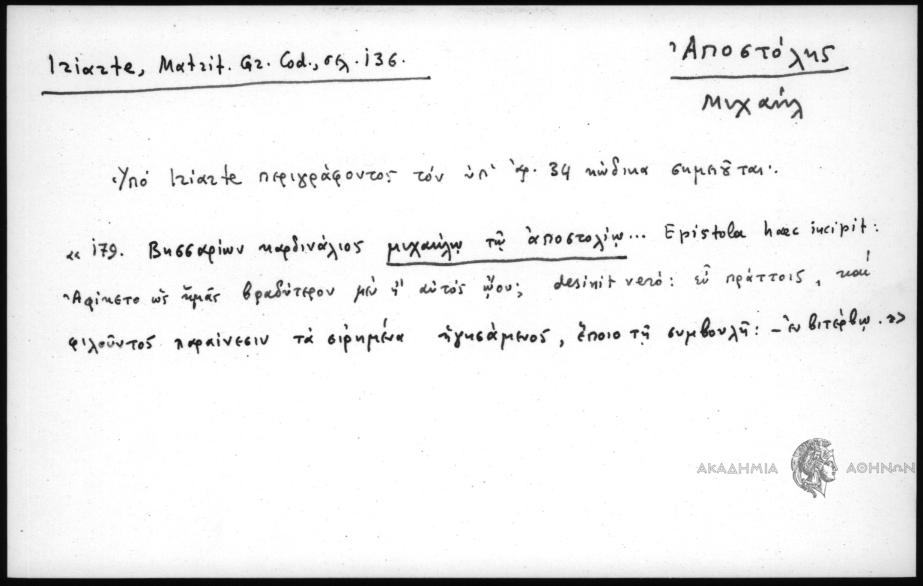 Iriarte, Matrit. Gr. Cod., σελ. 136.
Ἀποστόλης
Μιχαήλ
Ὑπό Iriarte περιγράφοντος τόν ὑπ' ἀρ. 34 κώδικα σημειοῦται·
« 179. Βησσαρίων καρδινάλιος μιχαήλῳ τῷ ἀποστολίῳ... Epistola haec incipit:
Ἀφίκετο ὡς ἡμᾶς βραδύτερον μέν ἤ αὐτός ᾤου; desinit verò: εὖ πράττοις, καί
φιλοῦντος παραίνεσιν τά εἰρημένα ἡγησάμενος, ἕποιο τῇ συμβουλῇ: – ἐν βιτέρβῳ. »
ΑΚΑΔΗΜΙΑ ΑΘΗΝΩΝ